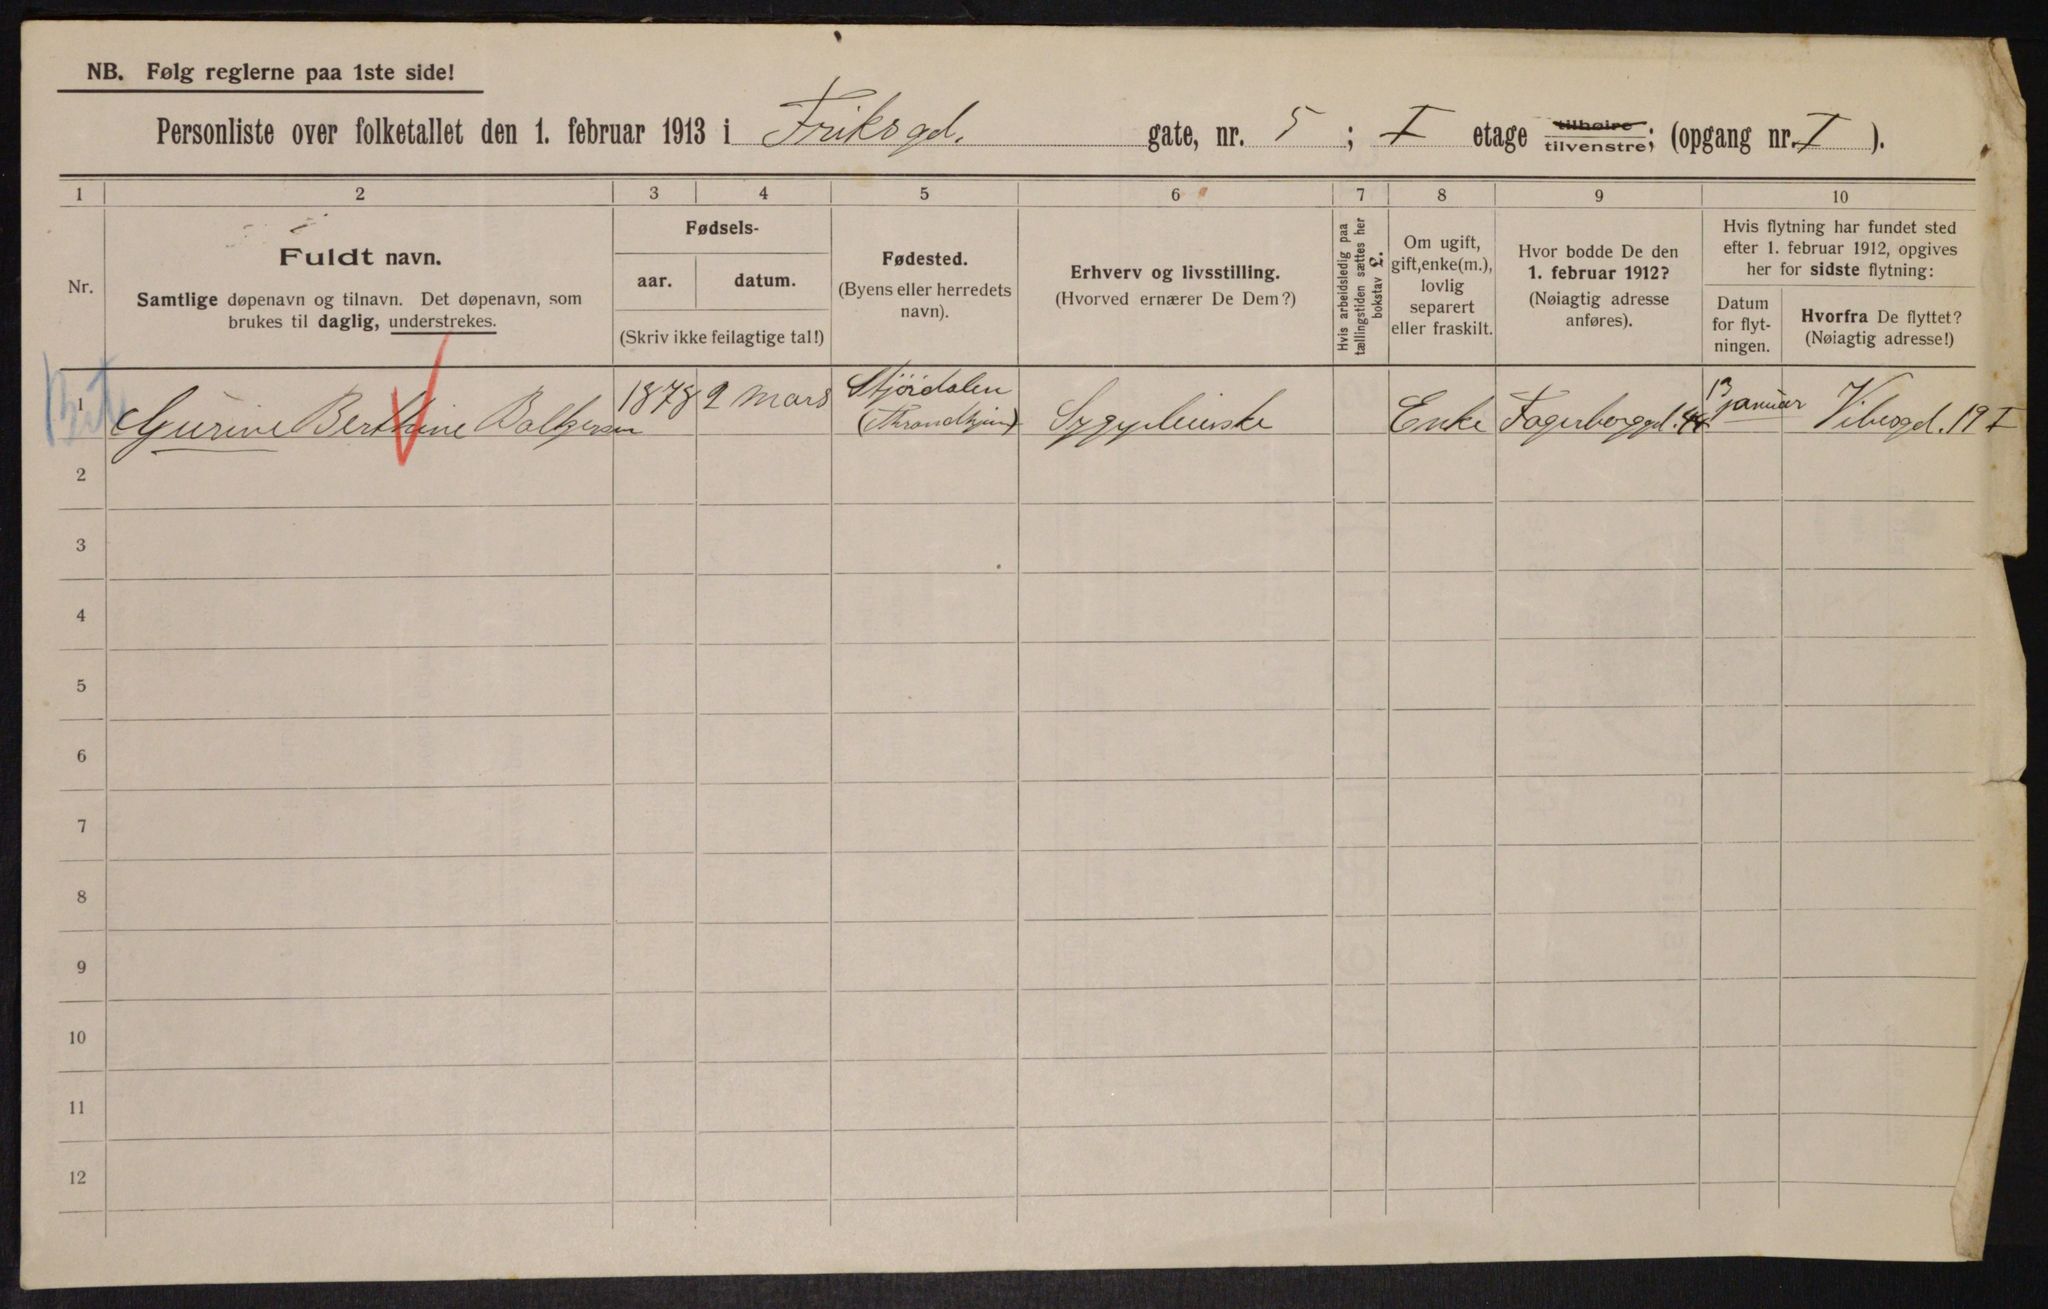 NB. Følg reglerne paa 1ste side!
Personliste over folketallet den 1. februar 1913 i Friksgd. gate, nr. 5 ; I etage tilhøire tilvenstre; (opgang nr. I ).
1 2 3 4 5 6 7 8 9 10
Nr.
Fuldt navn.
Samtlige døpenavn og tilnavn. Det døpenavn, som
brukes til daglig, understrekes.
Fødsels-
aar. datum.
(Skriv ikke feilagtige tal!)
Fødested.
(Byens eller herredets
navn).
Erhverv og livsstilling.
(Hvorved ernærer De Dem?)
Hvis arbeidsledig paa
tællingstiden sættes her
bokstav L.
Om ugift,
gift, enke(m.),
lovlig
separert
eller fraskilt.
Hvor bodde De den
1. februar 1912?
(Nøiagtig adresse
anføres).
Hvis flytning har fundet sted
efter 1. februar 1912, opgives
her for sidste flytning:
Datum
for flyt-
ningen.
Hvorfra De flyttet?
(Nøiagtig adresse!)
1 Gurine Berthine Bolgersen 1878 2 mars Stjørdalen (Throndhjem) Sygepleierske Enke Fagerborggd. 13 januar Vibesgd. 19 I
2
3
4
5
6
7
8
9
10
11
12